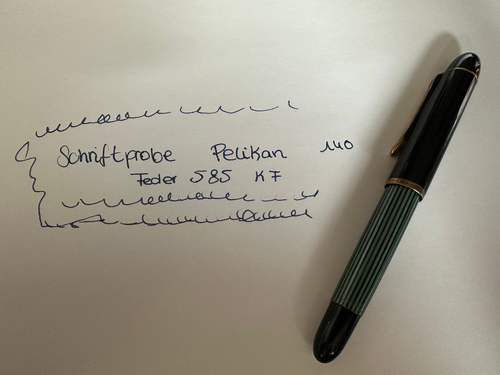 Schriftprobe Pelikan 140
Feder 585 KF